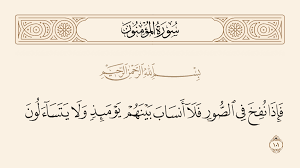 سُورَةُ المُؤْمِنُونَ
بِسْمِ اللَّهِ الرَّحْمَٰنِ الرَّحِيمِ
فَإِذَا نُفِخَ فِي الصُّورِ فَلَا أَنسَابَ بَيْنَهُمْ يَوْمَئِذٍ وَلَا يَتَسَاءَلُونَ
١٠١